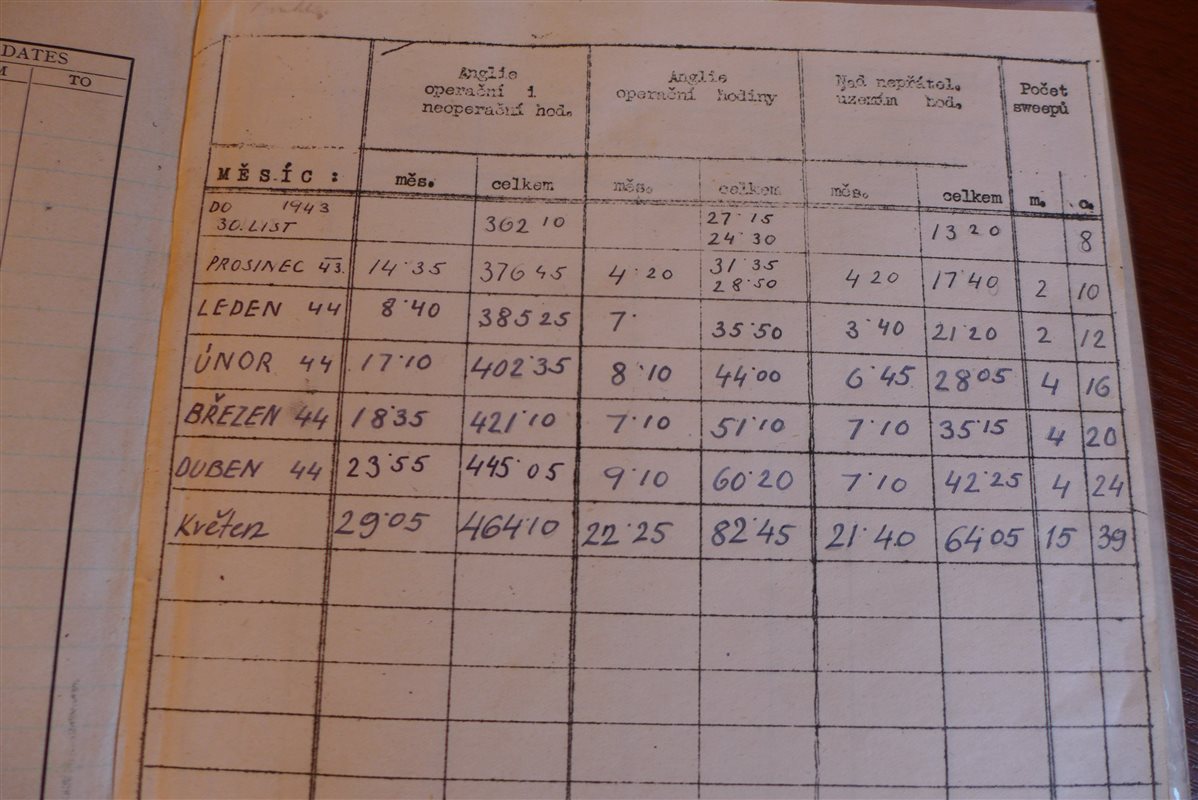 DATES
M TO
Anglie
operační i
neoperační hod.
Anglie
operační hodiny
Nad nepřátel.
územím hod.
Počet
sweepů
MĚSÍC: měs. celkem měs. celkem měs. celkem m. c.
DO 1943
30. LIST 362 10 27·15 24·30 13 20 8
PROSINEC 43. 14·35 376 45 4·20 31·35 28·50 4 20 17·40 2 10
LEDEN 44 8·40 385 25 7· 35·50 3·40 21·20 2 12
ÚNOR 44 17·10 402·35 8·10 44·00 6·45 28·05 4 16
BŘEZEN 44 18·35 421·10 7·10 51·10 7·10 35·15 4 20
DUBEN 44 23·55 445·05 9·10 60·20 7·10 42·25 4 24
Květen 29·05 464·10 22·25 82·45 21·40 64·05 15 39